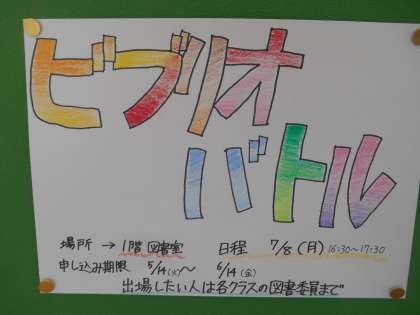 ビブリオ
バトル
場所 → 1階 図書室 日程 7/8 (月) 16:30〜17:30
申し込み期限 5/14(火)〜 6/14(金)
出場したい人は各クラスの図書委員まで